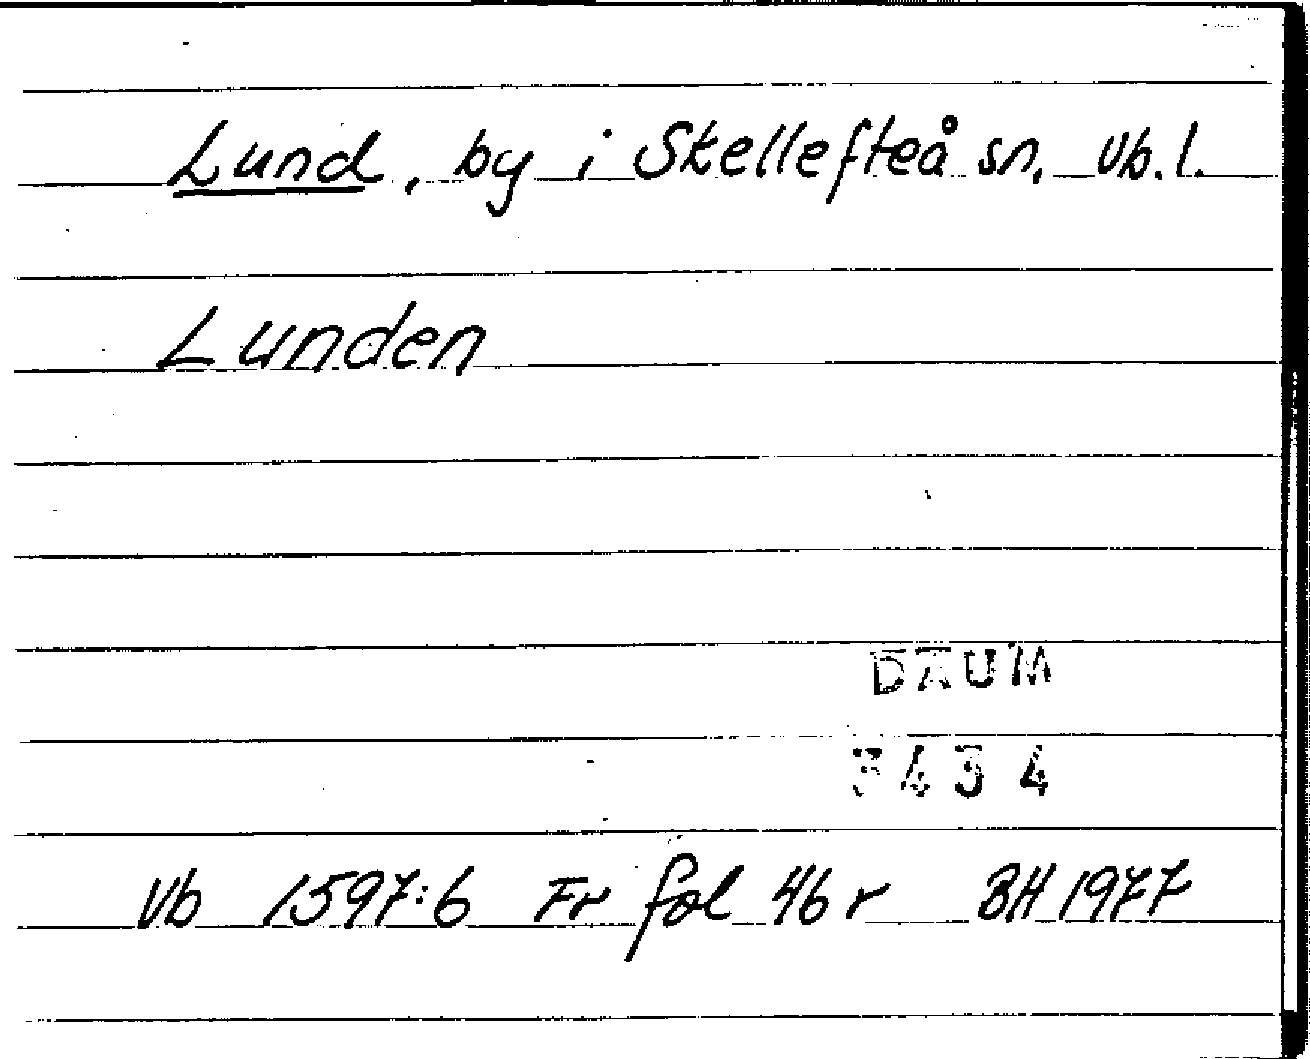 Lund, by i Skellefteå sn, Vb. l.
Lunden
DAUM
3434
Vb 1597:6 Fr fol 46 r BH 1977